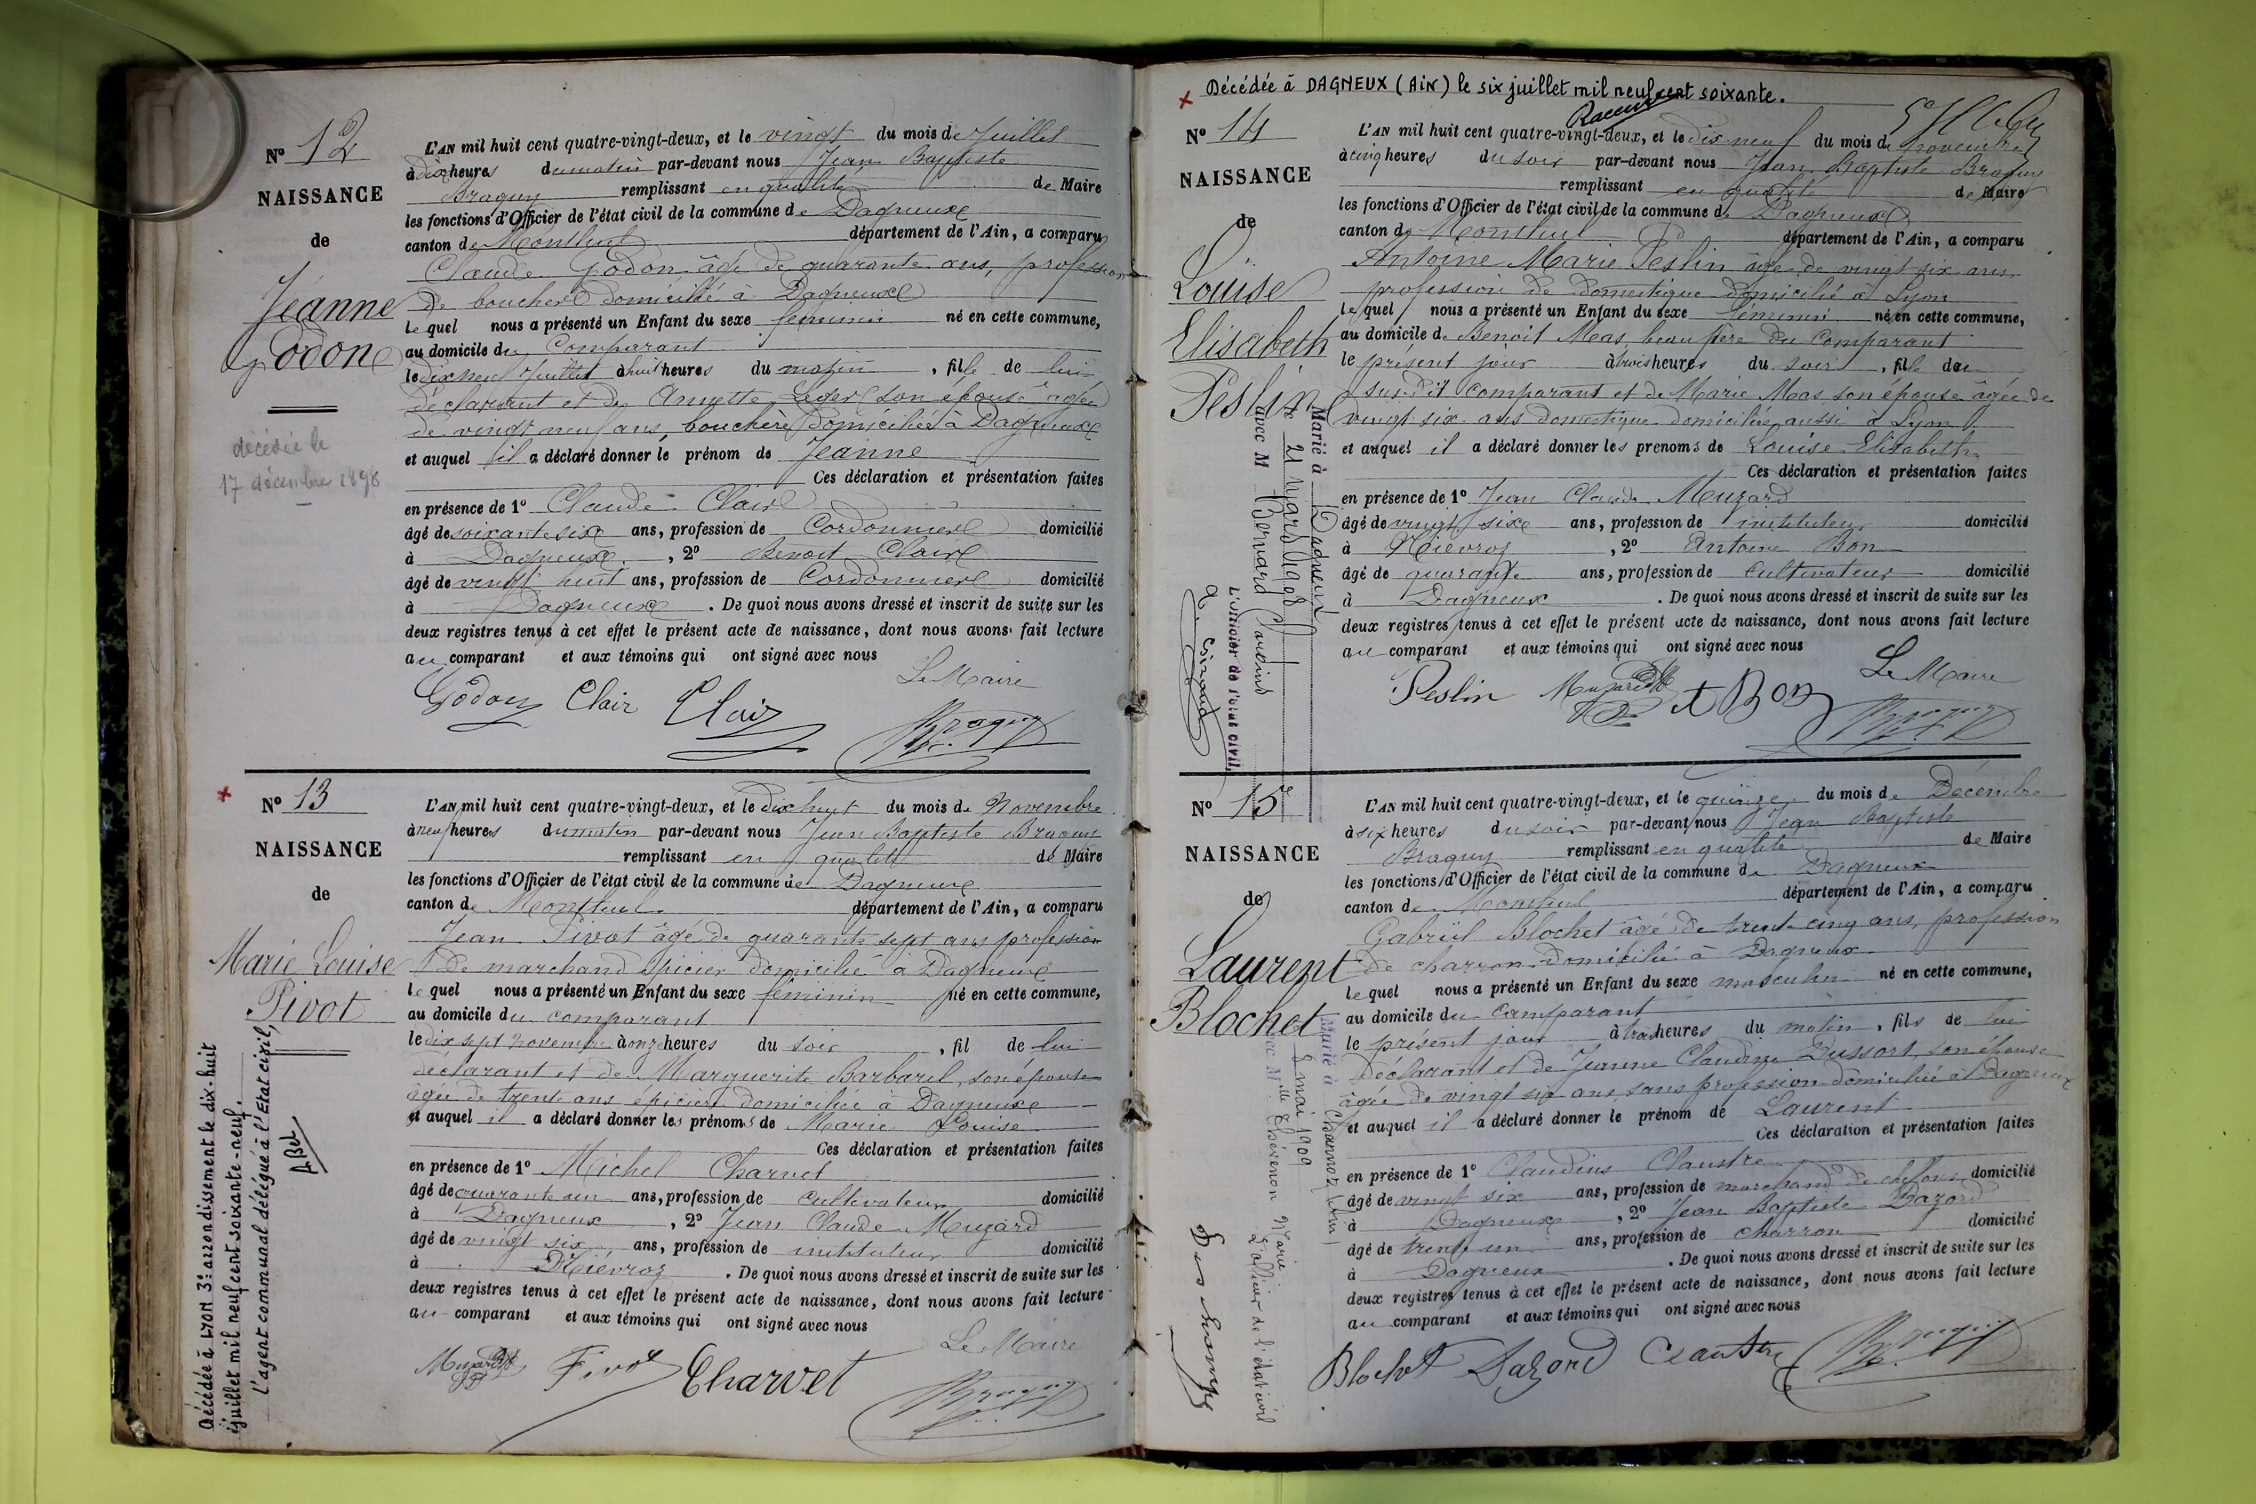 N° 12
NAISSANCE
de
Jeanne
Godon
décédée le
17 décembre 1898
L'AN mil huit cent quatre-vingt-deux, et le vingt du mois de Juillet
à dix heures du matin par-devant nous Jean Baptiste
Braguy remplissant en qualité de Maire
les fonctions d'Officier de l'état civil de la commune de Dagneux
canton de Montluel département de l'Ain, a comparu
Claude Godon âgé de quarante ans, profession
de boucher domicilié à Dagneux
lequel nous a présenté un Enfant du sexe féminin né en cette commune,
au domicile du Comparant
le dix neuf Juillet à huit heures du matin, fille de lui
déclarant et de Annette Léger son épouse âgée
de vingt neuf ans, bouchère domiciliée à Dagneux
et auquel il a déclaré donner le prénom de Jeanne
Ces déclaration et présentation faites
en présence de 1° Claude Clair
âgé de soixante six ans, profession de Cordonnier domicilié
à Dagneux, 2° Benoit Clair
âgé de vingt huit ans, profession de Cordonnier domicilié
à Dagneux. De quoi nous avons dressé et inscrit de suite sur les
deux registres tenus à cet effet le présent acte de naissance, dont nous avons fait lecture
au comparant et aux témoins qui ont signé avec nous
Le Maire
Godon Clair Clair Braguy
N° 13
NAISSANCE
de
Marie Louise
Pivot
Décédée à LYON 3è arrondissement le dix-huit
juillet mil neuf cent soixante-neuf.
l'agent communal délégué à l'Etat civil,
ABel
L'AN mil huit cent quatre-vingt-deux, et le dix huit du mois de Novembre
à neuf heures du matin par-devant nous Jean Baptiste Braguy
remplissant en qualité de Maire
les fonctions d'Officier de l'état civil de la commune de Dagneux
canton de Montluel département de l'Ain, a comparu
Jean Pivot âgé de quarante sept ans profession
de marchand épicier domicilié à Dagneux
lequel nous a présenté un Enfant du sexe féminin né en cette commune,
au domicile du comparant
le dix sept novembre à onze heures du soir, fil de lui
déclarant et de Marguerite Barbarel, son épouse
âgée de trente ans épicière domiciliée à Dagneux
et auquel il a déclaré donner les prénoms de Marie Louise
Ces déclaration et présentation faites
en présence de 1° Michel Charvet
âgé de quarante un ans, profession de cultivateur domicilié
à Dagneux, 2° Jean Claude Muzard
âgé de vingt six ans, profession de instituteur domicilié
à Niévroz. De quoi nous avons dressé et inscrit de suite sur les
deux registres tenus à cet effet le présent acte de naissance, dont nous avons fait lecture
au comparant et aux témoins qui ont signé avec nous
Le Maire
Muzard Pivot Charvet Braguy
Décédée à DAGNEUX (Ain) le six juillet mil neuf cent soixante.
N° 14
NAISSANCE
de
Louise
Elisabeth
Peslin
Marié à Dagneux
le 21 Mars 1908
avec M Bernard Claudius
L'Officier de l'état civil,
L'AN mil huit cent quatre-vingt-deux, et le dix neuf du mois de novembre
à cinq heures du soir par-devant nous Jean Baptiste Braguy
remplissant en qualité de Maire
les fonctions d'Officier de l'état civil de la commune de Dagneux
canton de Montluel département de l'Ain, a comparu
Antoine Marie Peslin âgé de vingt six ans
profession de domestique domicilié à Lyon
lequel nous a présenté un Enfant du sexe féminin né en cette commune,
au domicile de Benoit Mas, beau père du comparant
le présent jour à trois heures du soir, fille du
susdit comparant et de Marie Mas son épouse âgée de
vingt six ans domestique domiciliée aussi à Lyon
et auquel il a déclaré donner les prénoms de Louise Elisabeth
Ces déclaration et présentation faites
en présence de 1° Jean Claude Muzard
âgé de vingt six ans, profession de instituteur domicilié
à Niévroz, 2° Antoine Bon
âgé de quarante ans, profession de cultivateur domicilié
à Dagneux. De quoi nous avons dressé et inscrit de suite sur les
deux registres tenus à cet effet le présent acte de naissance, dont nous avons fait lecture
au comparant et aux témoins qui ont signé avec nous
Le Maire
Peslin Muzard A Bon Braguy
N° 15
NAISSANCE
de
Laurent
Blochet
Marié à
8 mai 1909
avec Mlle Thévenon Marie
L'officier de l'état civil
L'AN mil huit cent quatre-vingt-deux, et le quinze du mois de Décembre
à six heures du soir par-devant nous Jean Baptiste
Braguy remplissant en qualité de Maire
les fonctions d'Officier de l'état civil de la commune de Dagneux
canton de Montluel département de l'Ain, a comparu
Gabriel Blochet âgé de trente cinq ans, profession
de charron domicilié à Dagneux
lequel nous a présenté un Enfant du sexe masculin né en cette commune,
au domicile du Comparant
le présent jour à trois heures du matin, fils de lui
Déclarant et de Jeanne Claudine Dussort, son épouse
âgée de vingt six ans, sans profession domiciliée à Dagneux
et auquel il a déclaré donner le prénom de Laurent
Ces déclaration et présentation faites
en présence de 1° Claudius Claustre
âgé de vingt six ans, profession de marchand de chiffons domicilié
à Dagneux, 2° Jean Baptiste Dazord
âgé de trente un ans, profession de charron domicilié
à Dagneux. De quoi nous avons dressé et inscrit de suite sur les
deux registres tenus à cet effet le présent acte de naissance, dont nous avons fait lecture
au comparant et aux témoins qui ont signé avec nous
Blochet Dazord Claustre Braguy